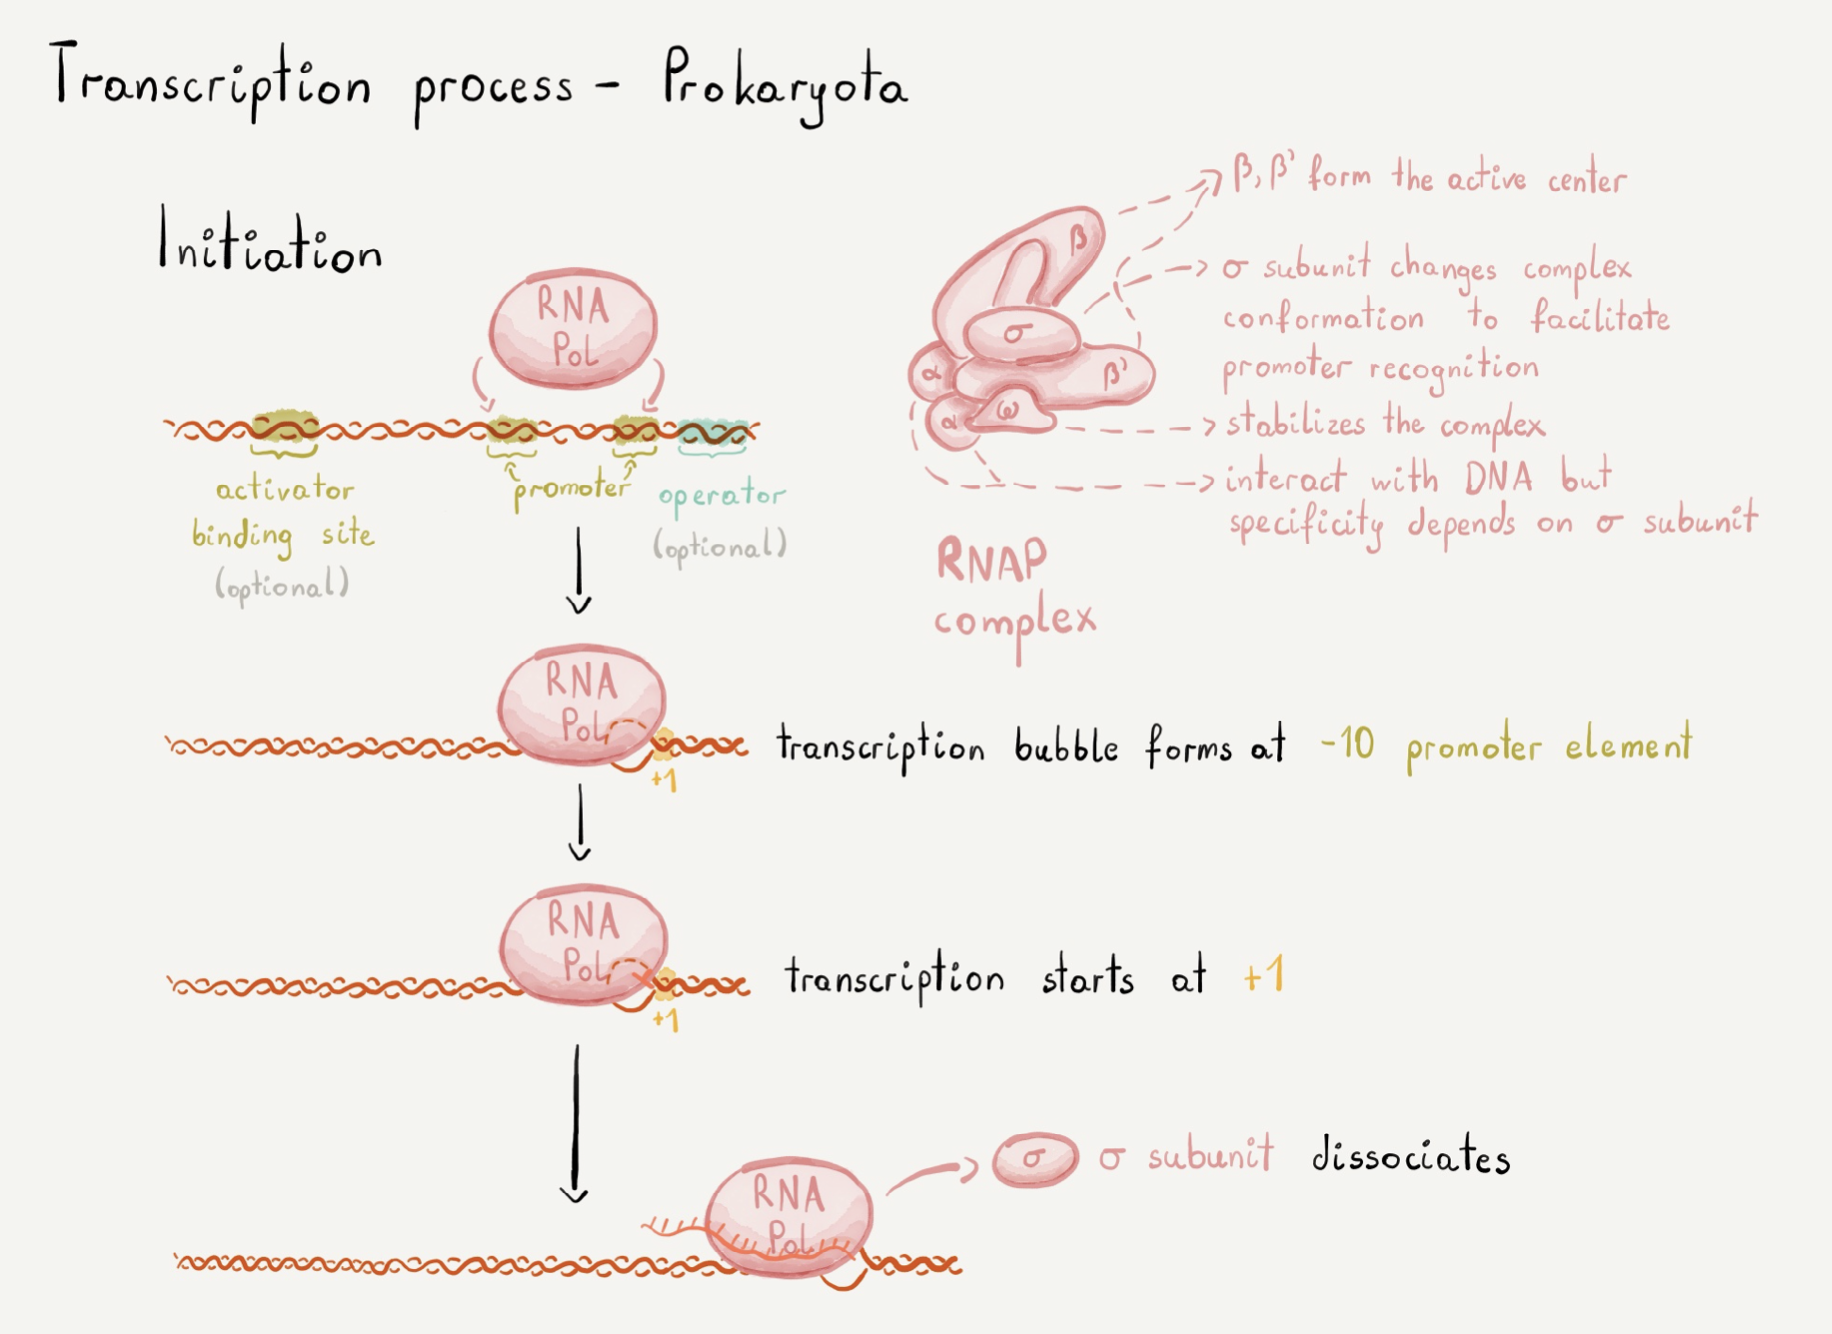 Transcription process - Prokaryota
Initiation
RNA
Pol
activator
binding site
(optional)
promoter
operator
(optional)
β
σ
α
β'
α
ω
β, β' form the active center
σ subunit changes complex
conformation to facilitate
promoter recognition
stabilizes the complex
interact with DNA but
specificity depends on σ subunit
RNAP
complex
RNA
Pol
+1
transcription bubble forms at -10 promoter element
RNA
Pol
+1
transcription starts at +1
RNA
Pol
σ
σ subunit dissociates